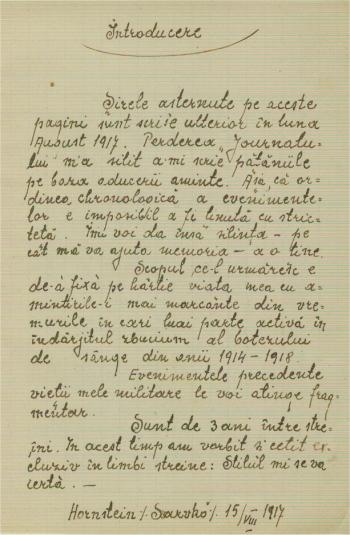 Introducere
Șirele asternute pe aceste
pagini sunt scrise ulterior în luna
August 1917. Perderea „Journalu-
lui m'a silit a-mi scrie pățăniile
pe baza aducerii aminte. Așă, că or-
dinea chronologică a evenimente-
lor e imposibil a fi ținută cu stric-
tetă. Îmi voi da însă silința – pe
cât mă va ajuta memoria – a o tine.
Scopul ce-l urmăresc e
de-á fixà pe hârtie viata mea cu a-
mintirile-i mai marcante din vre-
murile în cari luai parte activă în
îndârjitul sbucium al botezului
de sânge din anii 1914-1918.
Evenimentele precedente
vietii mele militare le voi atinge frag-
mentar.
Sunt de 3 ani între stre-
ini. In acest timp am vorbit si cetit ex-
cluziv în limbi streine: Stilul mi se va
iertà. –
Hornstein /. Sarvkő /. 15/VIII 1917